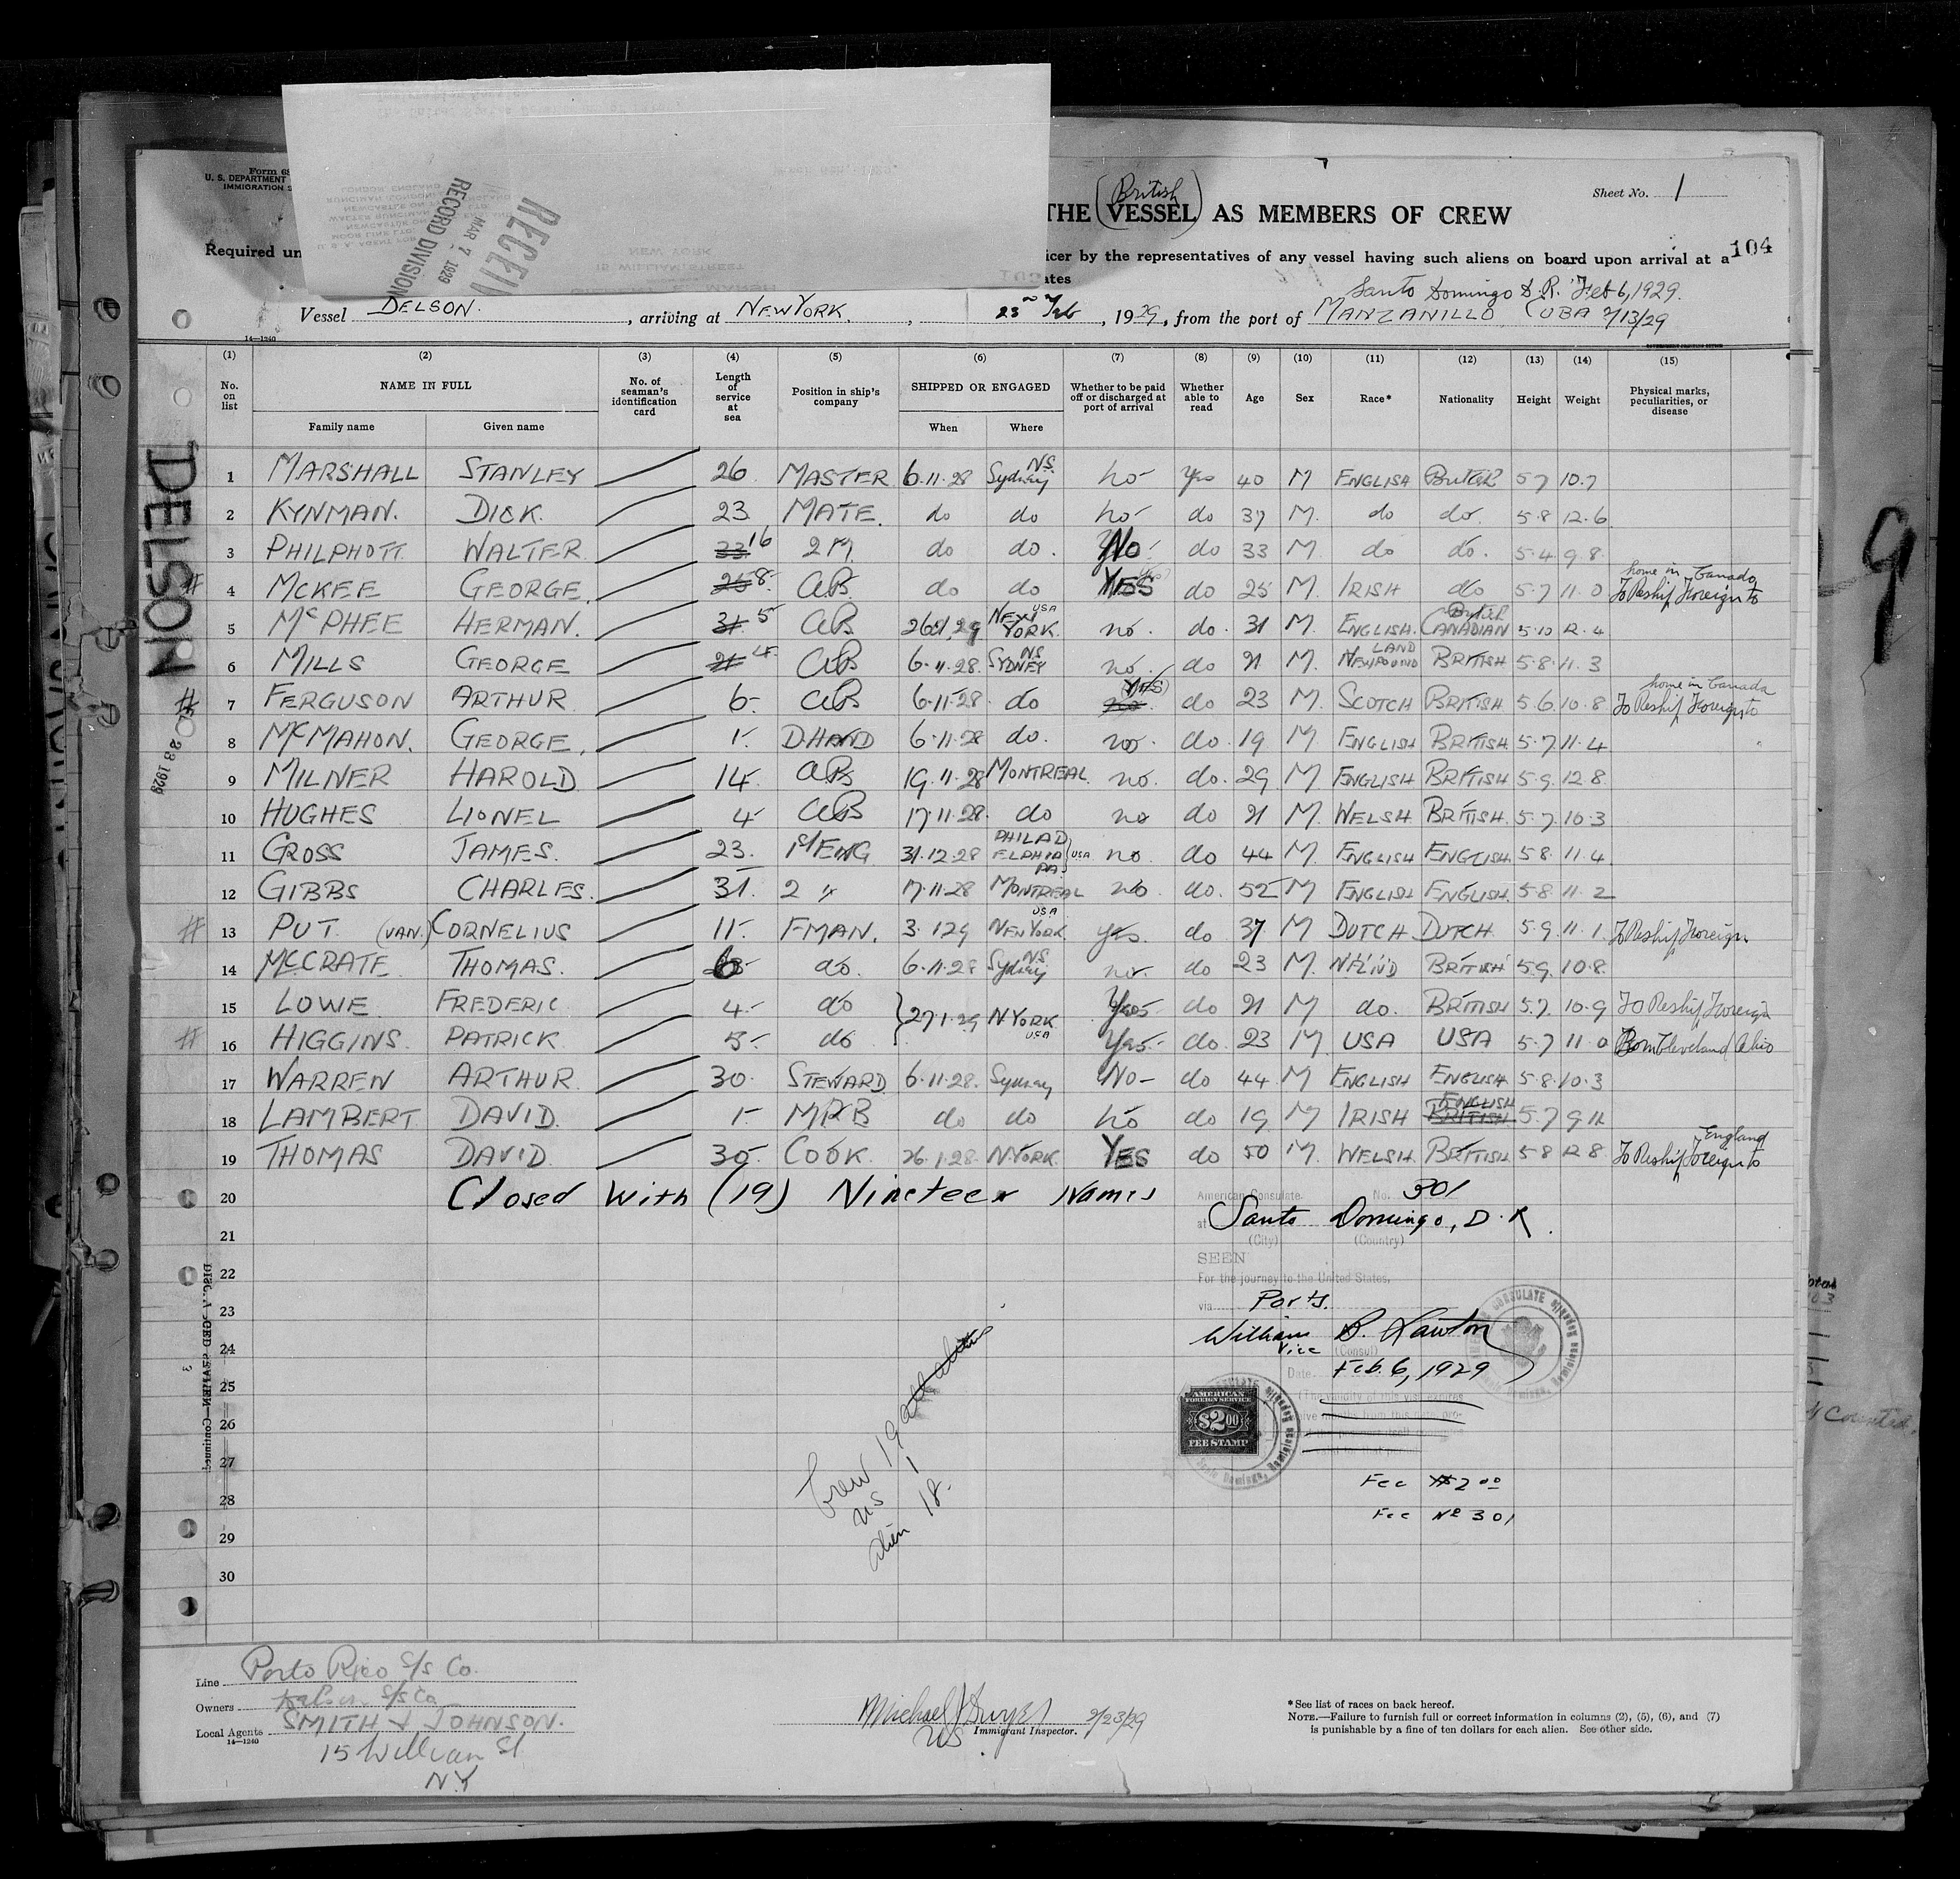 Form 68
U. S. DEPARTMENT
IMMIGRATION S
RECEIV
MAR 7 1929
RECORD DIVISION
THE (VESSEL) AS MEMBERS OF CREW
British
Sheet No. 1
104
Required un
icer by the representatives of any vessel having such aliens on board upon arrival at a
ates
Santo Domingo D.R. Feb 6, 1929.
Vessel DELSON. , arriving at NEW YORK. , 23rd Feb , 1929, from the port of MANZANILLO CUBA 2/13/29
14—1240
(1) (2) (3) (4) (5) (6) (7) (8) (9) (10) (11) (12) (13) (14) (15)
No. on list
NAME IN FULL
Family name
Given name
No. of seaman's identification card
Length of service at sea
Position in ship's company
SHIPPED OR ENGAGED
When
Where
Whether to be paid off or discharged at port of arrival
Whether able to read
Age
Sex
Race*
Nationality
Height
Weight
Physical marks, peculiarities, or disease
DELSON
1 MARSHALL STANLEY 26 MASTER 6.11.28 Sydney N.S. no Yes 40 M ENGLISH British 5 7 10.7
2 KYNMAN. DICK. 23 MATE. do do no do 37 M. do do. 5.8 12.6
3 PHILPHOTT. WALTER. 23 16 2 M do do. No do 33 M do do. 5.4 9 8
# 4 MCKEE GEORGE. 25 8 AB. do do YES do 25 M. IRISH do 5.7 11.0 To Reship Foreign to home in Canada
5 McPHEE HERMAN. 31 5 AB 26.1.29 NEW YORK. USA no. do. 31 M. ENGLISH. British CANADIAN 5.10 12.4
6 MILLS GEORGE 21 4 AB 6.11.28. SYDNEY NS no. do 21 M. NEWFOUNDLAND BRITISH 5.8. 11.3
# 7 FERGUSON ARTHUR 6. AB 6.11.28. do no (YES) do 23 M. SCOTCH BRITISH 5.6 10.8 To Reship Foreign to home in Canada
8 McMAHON. GEORGE. 1. D.HAND 6.11.28 do. no. do. 19 M ENGLISH BRITISH. 5.7 11.4
9 MILNER HAROLD. 14. AB 19.11.28 MONTREAL no. do. 29 M ENGLISH BRITISH 5.9. 12 8
10 HUGHES LIONEL 4 AB 17.11.28. do no do 21 M. WELSH BRITISH. 5.7. 10.3
11 GROSS JAMES. 23. 1st ENG 31.12.28 PHILADELPHIA PA. USA no. do 44 M. ENGLISH ENGLISH 5 8. 11.4
12 GIBBS CHARLES. 31. 2 " 17.11.28 MONTREAL no do. 52 M ENGLISH ENGLISH 5.8 11.2
# 13 PUT (VAN.) CORNELIUS 11. FMAN. 3.1 29 NEW YORK. USA yes. do 37 M DUTCH DUTCH 5.9 11.1 To Reship Foreign.
14 MCCRATE THOMAS. 6 do. 6.11.28 Sydney N.S. no. do 23 M. NFLND BRITISH 5.9. 10.8.
15 LOWE FREDERIC 4. do 27.1.29 N YORK USA Yes do 21 M do. BRITISH 5.7. 10.9 To Reship Foreign
# 16 HIGGINS. PATRICK 5- do Yes do. 23 M USA USA 5.7 11 0 Born Cleveland Ohio
17 WARREN ARTHUR. 30. STEWARD 6.11.28. Sydney No- do 44 M ENGLISH ENGLISH 5.8. 10.3
18 LAMBERT DAVID. 1- MRB do do no do 19 M IRISH BRITISH ENGLISH 5.7 9 11
19 THOMAS DAVID. 30. COOK. 26.1.28. N.YORK. YES do 50 M. WELSH. BRITISH 5 8 12 8 To Reship Foreign to England
20 Closed With (19) Nineteen Names
21
22
23
24
25
26
27
28
29
30
23 1929
American Consulate. No. 301
at Santo Domingo, D.R.
(City) (Country)
SEEN
For the journey to the United States,
via Ports.
William B. Lawton
Vice (Consul)
Date Feb. 6, 1929
AMERICAN FOREIGN SERVICE
$2.00
FEE STAMP
Fee $2.00
Fee No 301
Crew 19
US 1
alien 18.
Line Porto Rico S/S Co.
Owners S/S Co
Local Agents SMITH & JOHNSON.
14—1240
15 William St
N.Y
Michael J Dwyer 2/23/29
US Immigrant Inspector.
*See list of races on back hereof.
NOTE.—Failure to furnish full or correct information in columns (2), (5), (6), and (7)
is punishable by a fine of ten dollars for each alien. See other side.